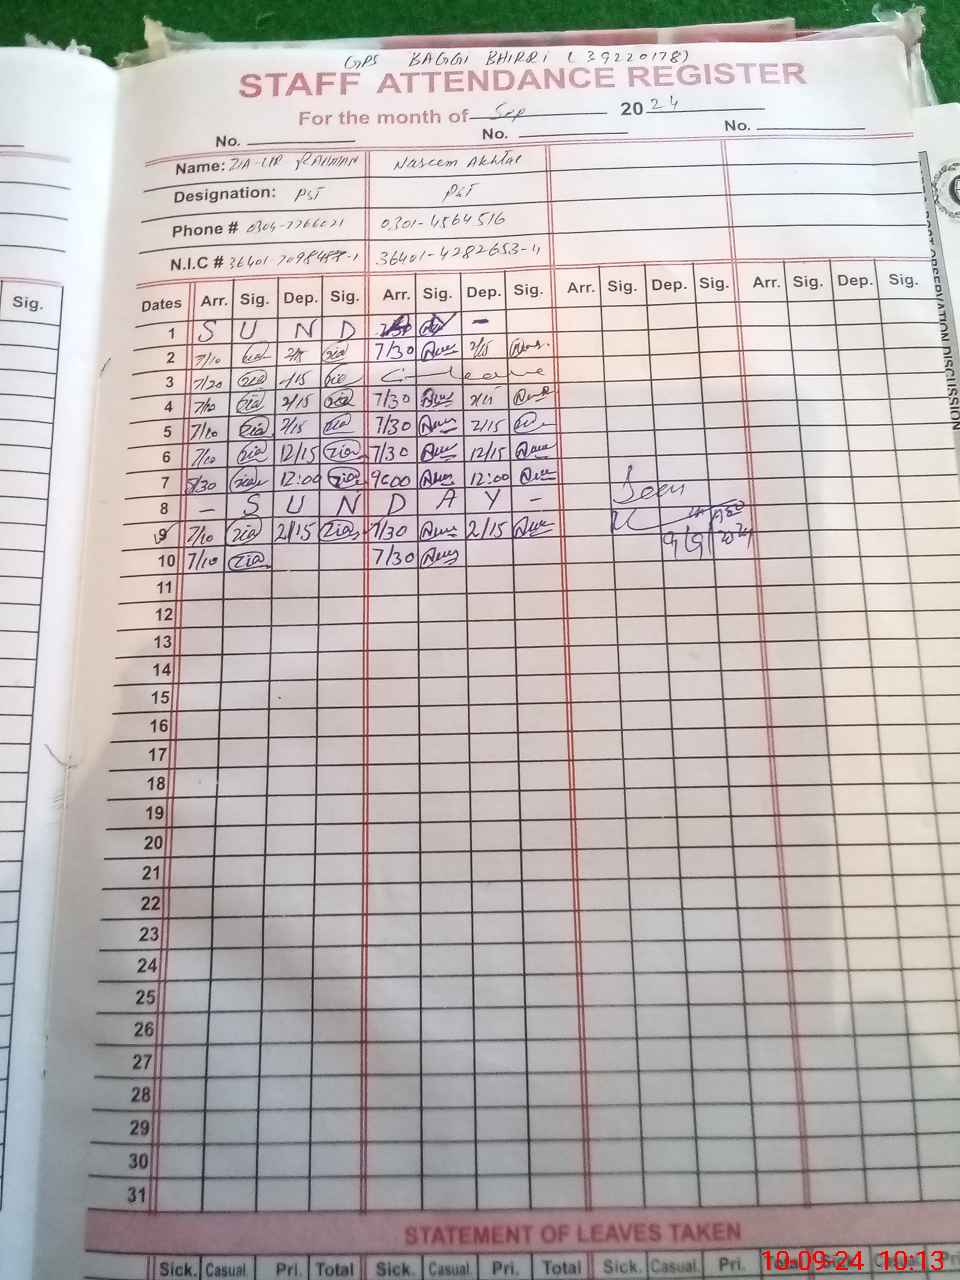 GPS BAGGI BHIRRI (39220178)
STAFF ATTENDANCE REGISTER
For the month of Sep 2024
No. No. No.
Name: ZIA-UR RAHMAN Naseem Akhtar
Designation: PST PST
Phone # 0301-4564516
N.I.C # 36401-4282653-4
Sig.
Dates Arr. Sig. Dep. Sig. Arr. Sig. Dep. Sig. Arr. Sig. Dep. Sig. Arr. Sig. Dep. Sig.
1 S U N D -
2 7/10 zia 7/30 2/15
3 7/20 zia 1/15 zia C- leave
4 7/10 zia 2/15 zia 7/30 2/15
5 7/10 zia 2/15 zia 7/30 2/15
6 7/10 zia 12/15 zia 7/30 12/15
7 8/30 zia 12:00 zia 9:00 12:00 Seen
8 - S U N D A Y -
9 7/10 zia 2/15 zia 7/30 2/15 9/9/2024
10 7/10 zia 7/30
11
12
13
14
15
16
17
18
19
20
21
22
23
24
25
26
27
28
29
30
31
STATEMENT OF LEAVES TAKEN
Sick. Casual. Pri. Total Sick. Casual. Pri. Total Sick. Casual. Pri. Total Sick. Casual. Pri.
POST OBSERVATION DISCUSSION
10-09-24 10:13